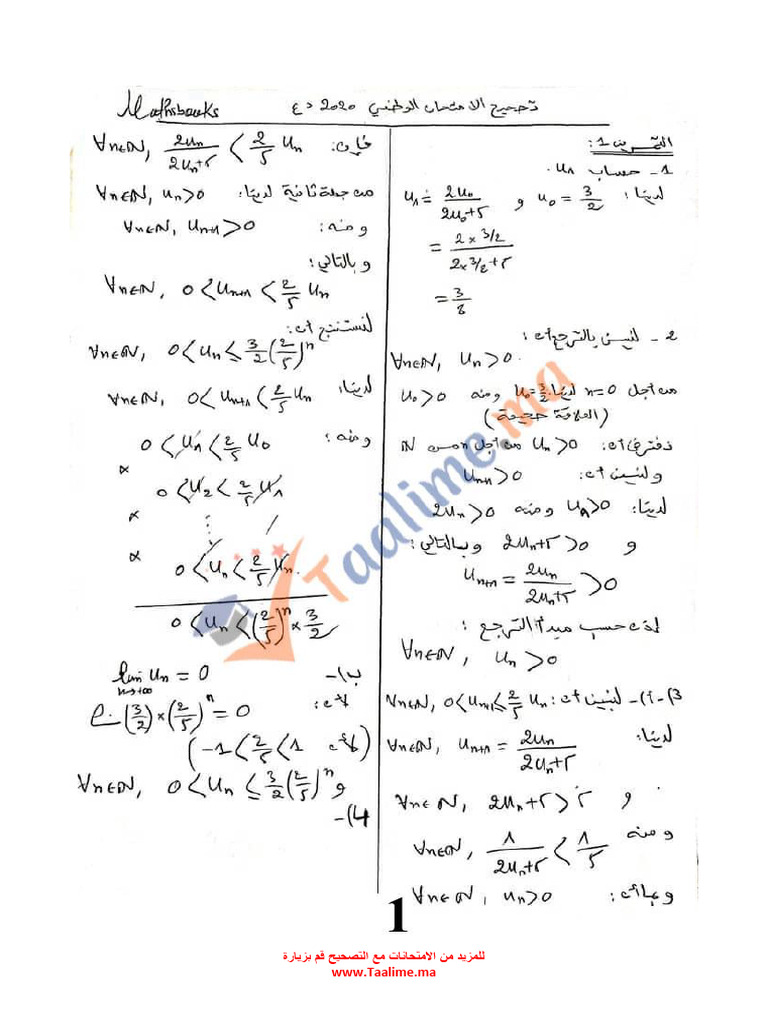 Mathsbouks
تصحيح الامتحان الوطني 2020 د ع
التمرين 1:
1- حساب u₁.
لدينا: u₀ = 3/2 و u₁ = 2u₀/(2u₀+5)
= (2×3/2)/(2×3/2+5)
= 3/8
2- لنبين بالترجع أن:
∀n∈ℕ, uₙ>0.
من أجل n=0 لدينا u₀=3/2 ومنه u₀>0
(العلاقة صحيحة)
نفترض أن: uₙ>0 من أجل n من ℕ
ولنبين أن: uₙ₊₁>0
لدينا: uₙ>0 ومنه 2uₙ>0
و 2uₙ+5>0 وبالتالي:
uₙ₊₁ = 2uₙ/(2uₙ+5) > 0
إذن حسب مبدأ الترجع:
∀n∈ℕ, uₙ>0
3)-أ)- لنبين أن: ∀n∈ℕ, 0<uₙ₊₁≤2/5 uₙ
لدينا: ∀n∈ℕ, uₙ₊₁ = 2uₙ/(2uₙ+5)
و ∀n∈ℕ, 2uₙ+5>5
ومنه ∀n∈ℕ, 1/(2uₙ+5) < 1/5
وبما أن: ∀n∈ℕ, uₙ>0
فإن: ∀n∈ℕ, 2uₙ/(2uₙ+5) < 2/5 uₙ
من جهة ثانية لدينا: ∀n∈ℕ, uₙ>0
ومنه: ∀n∈ℕ, uₙ₊₁>0
وبالتالي:
∀n∈ℕ, 0<uₙ₊₁<2/5 uₙ
لنستنتج أن:
∀n∈ℕ, 0<uₙ≤3/2(2/5)ⁿ
لدينا: ∀n∈ℕ, 0<uₙ₊₁<2/5 uₙ
ومنه: 0<u₁<2/5 u₀
×
0<u₂<2/5 u₁
×
×
0<uₙ<2/5 uₙ.
0<uₙ<(2/5)ⁿ×3/2
ب)- lim uₙ = 0
n→+∞
لأن: (3/2)×(2/5)ⁿ = 0
(لأن -1<2/5<1)
و ∀n∈ℕ, 0<uₙ≤3/2(2/5)ⁿ
4)-
1
للمزيد من الامتحانات مع التصحيح قم بزيارة
www.Taalime.ma
Taalime.ma